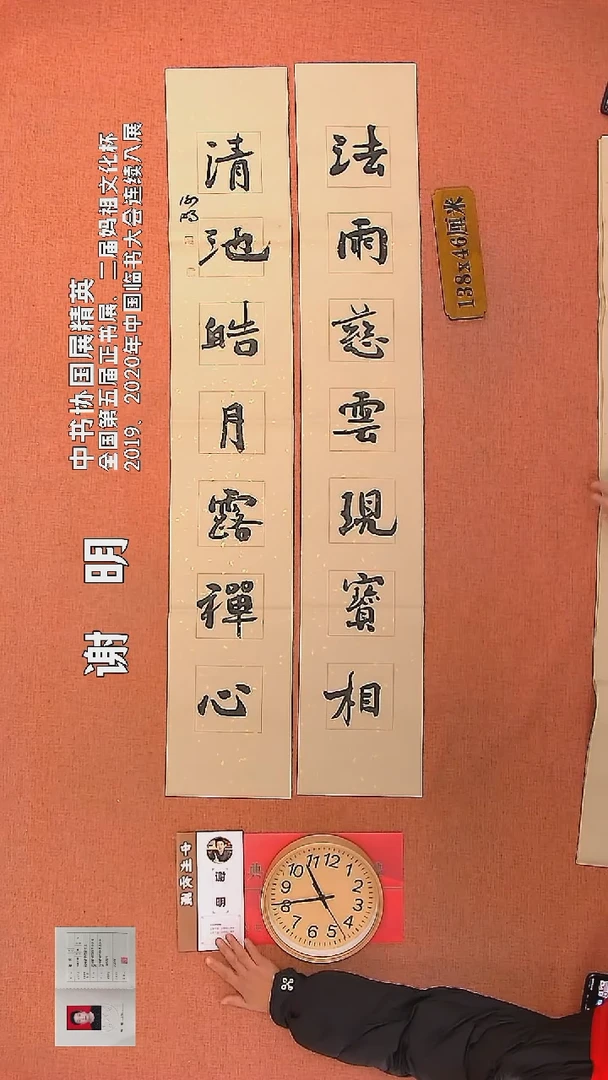 法雨慈雲現寶相
清池皓月露禪心
谢明
138x46厘米
中书协国展精英
全国第五届正书展、二届妈祖文化杯
2019、2020年中国临书大会连续入展
谢 明
谢 明
12
1
2
3
4
5
6
7
8
9
10
11